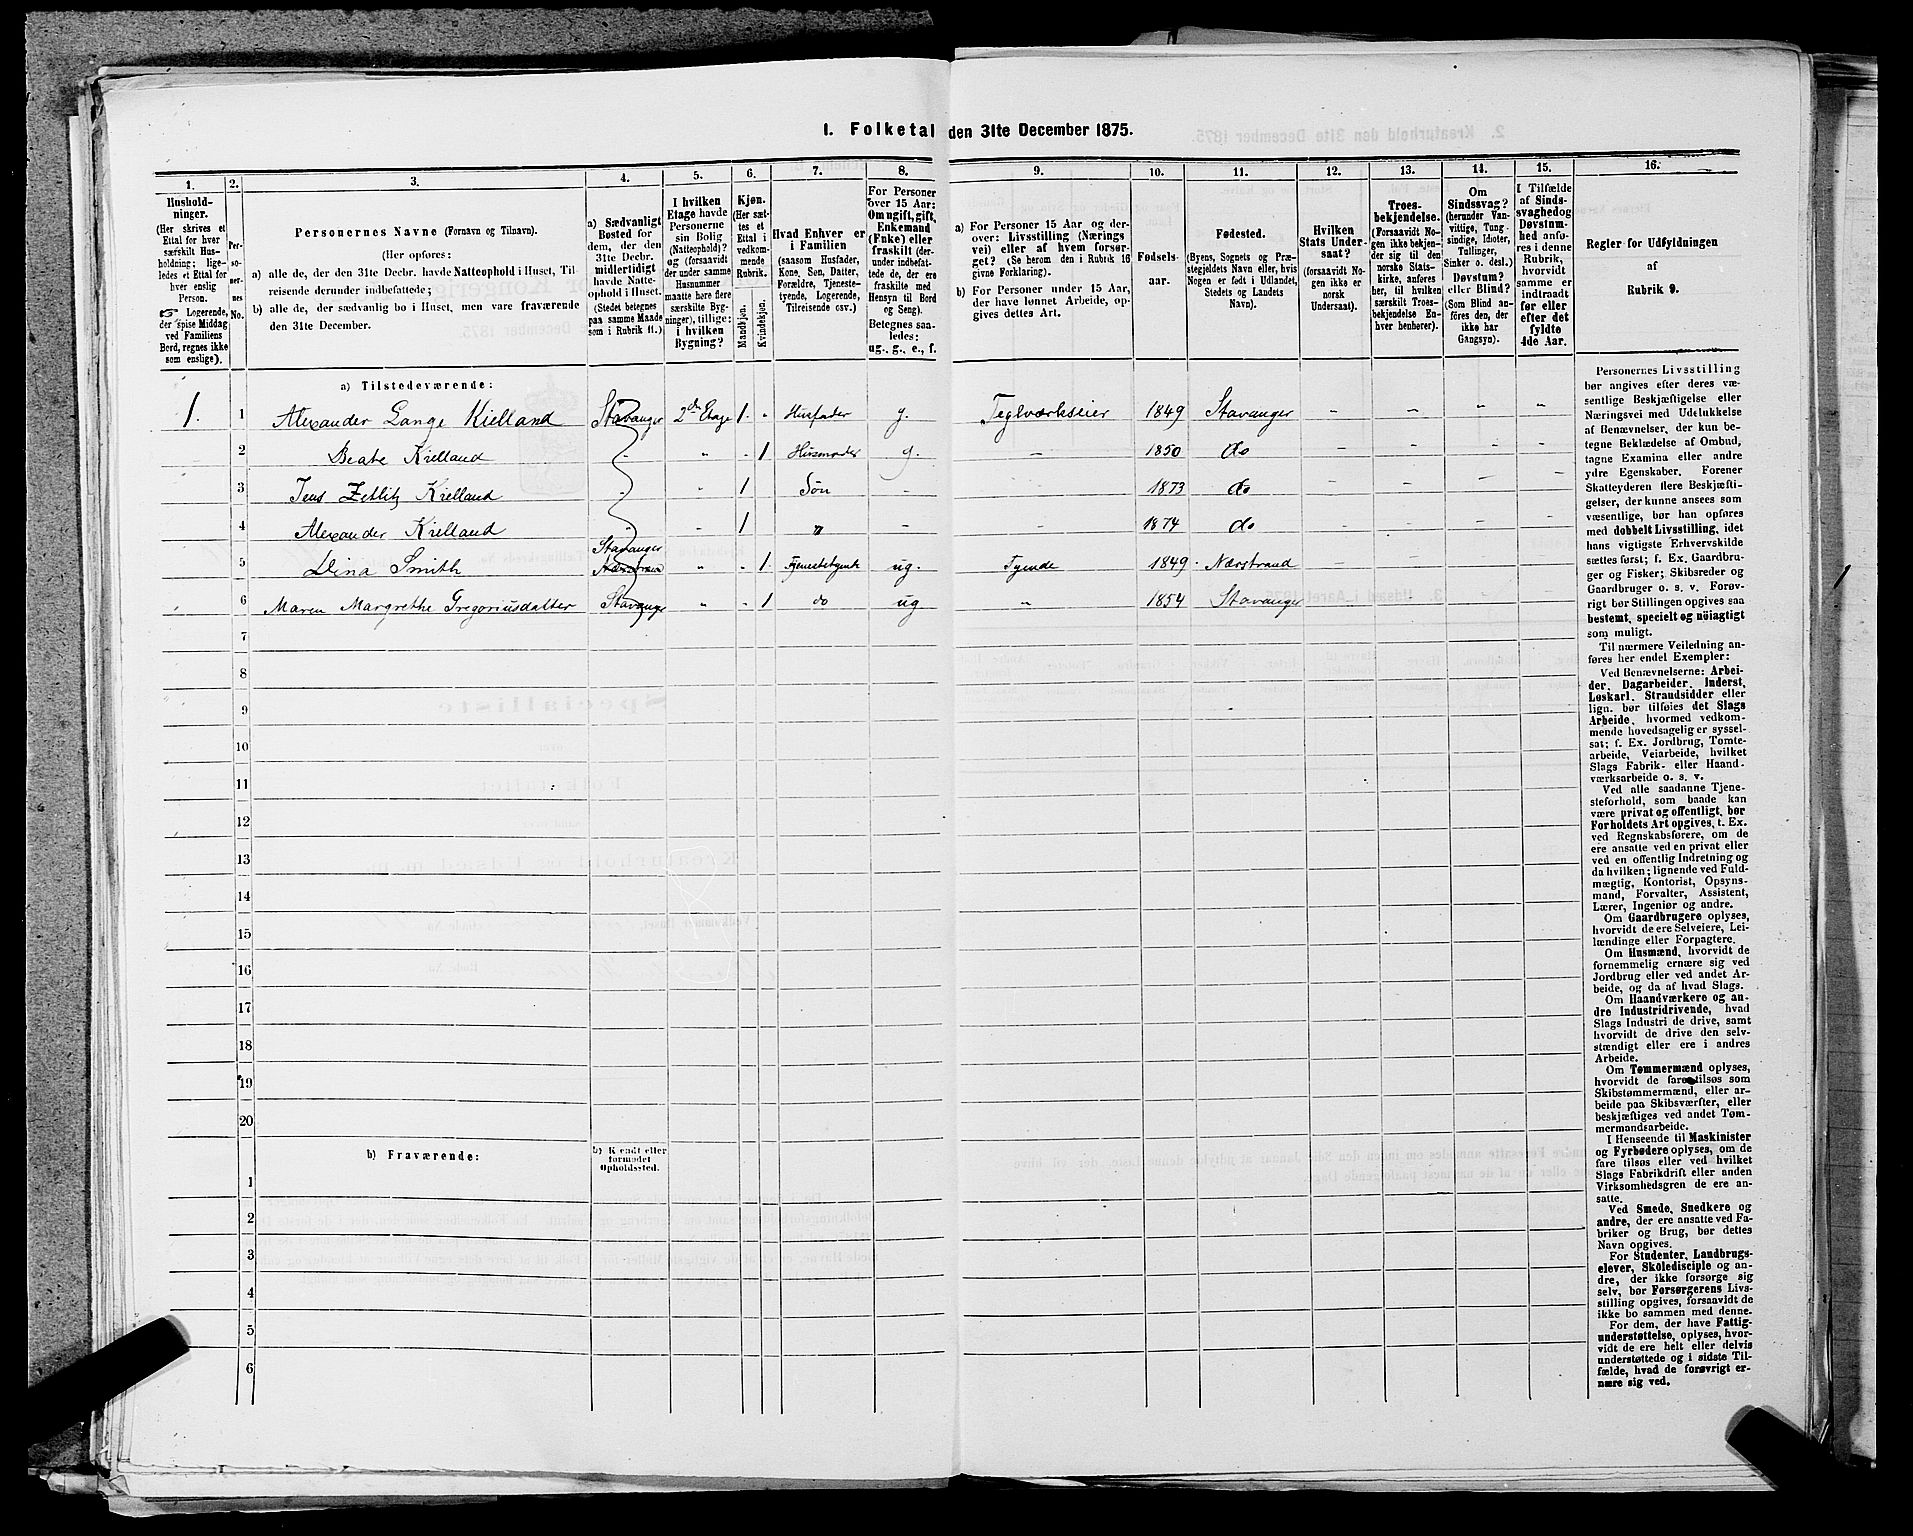 1. Folketal den 31te December 1875.
1. 2. 3. 4. 5. 6. 7. 8. 9. 10. 11. 12. 13. 14. 15. 16.
Hushold-
ninger.
(Her skrives et
Ettal for hver
særskilt Hus-
holdning; lige-
ledes et Ettal for
hver enslig
Person.
☞ Logerende,
der spise Middag
ved Familiens
Bord, regnes ikke
som enslige).
Per-
so-
ner-
nes
No.
Personernes Navne (Fornavn og Tilnavn).
(Her opføres:
a) alle de, der den 31te Decbr. havde Natteophold i Huset, Til-
reisende derunder indbefattede;
b) alle de, der sædvanlig bo i Huset, men vare fraværende
den 31te December.
a) Sædvanligt
Bosted for
dem, der den
31te Decbr.
midlertidigt
havde Natte-
ophold i Huset.
(Stedet betegnes
paa samme Maade
som i Rubrik 11.)
I hvilken
Etage havde
Personerne
sin Bolig
(Natteophold)?
og (forsaavidt
der under samme
Husnummer
maatte høre flere
særskilte Byg-
ninger), tillige:
i hvilken
Bygning?
Kjøn.
(Her sæt-
tes et
Ettal i
vedkom-
mende
Rubrik.
Mandkjøn.
Kvindekjøn.
Hvad Enhver er
i Familien
(saasom Husfader,
Kone, Søn, Datter,
Forældre, Tjeneste-
tyende, Logerende,
Tilreisende osv.)
For Personer
over 15 Aar:
Om ugift, gift,
Enkemand
(Enke) eller
fraskilt (der-
under indbefat-
tede de, der ere
fraskilte med
Hensyn til Bord
og Seng).
Betegnes saa-
ledes:
ug., g., e., f.
a) For Personer 15 Aar og der-
over: Livsstilling (Nærings
vei) eller af hvem forsør-
get? (Se herom den i Rubrik 16
givne Forklaring).
b) For Personer under 15 Aar,
der have lønnet Arbeide, op-
gives dettes Art.
Fødsels-
aar.
Fødested.
(Byens, Sognets og Præ-
stegjeldets Navn eller, hvis
Nogen er født i Udlandet,
Stedets og Landets
Navn).
Hvilken
Stats Under-
saat?
(forsaavidt No-
gen ikke er
norsk
Undersaat).
Troes-
bekjendelse.
(Forsaavidt No-
gen ikke bekjen-
der sig til den
norske Stats-
kirke, anføres
her, til hvilken
særskilt Troes-
bekjendelse En-
hver henhører).
Om
Sindssvag?
(herunder Van-
vittige, Tung-
sindige, Idioter,
Tullinger,
Sinker o. desl.)
Døvstum?
eller Blind?
(Som Blind an-
føres den, der
ikke har
Gangsyn).
I Tilfælde
af Sinds-
svaghed og
Døvstum-
hed anfø-
res i denne
Rubrik,
hvorvidt
samme er
indtraadt
før eller
efter det
fyldte
4de Aar.
Regler for Udfyldningen
af
Rubrik 9.
a) Tilstedeværende:
1. 1 Alexander Lange Kielland Stavanger 2den Etage 1. " Husfader g. Teglværkseier 1849 Stavanger – – – –
2 Beate Kielland " " " 1 Husmoder g. – 1850 do – – –
3 Jens Zetlitz Kielland " " 1 Søn – – 1873 do – – – –
4 Alexander Kielland " " 1 " – – 1874 do – – – –
Stavanger
5 Dina Smith " " 1 Tjenestetyende ug. Tyende 1849 Nærstrand – – – –
6 Maren Margrethe Gregoriusdatter Stavanger " " 1 do ug " 1854 Stavanger – – – –
7
8
9
10
11
12
13
14
15
16
17
18
19
20
b) Fraværende:
b) Kjendt eller
formodet
Opholdssted.
1
2
3
4
5
6
Personernes Livsstilling
bør angives efter deres væ-
sentlige Beskjæftigelse eller
Næringsvei med Udelukkelse
af Benævnelser, der kun be-
tegne Beklædelse af Ombud,
tagne Examina eller andre
ydre Egenskaber. Forener
Skatteyderen flere Beskjæfti-
gelser, der kunne ansees som
væsentlige, bør han opføres
med dobbelt Livsstilling, idet
hans vigtigste Erhvervskilde
sættes først; f. Ex. Gaardbru-
ger og Fisker; Skibsreder og
Gaardbruger o. s. v. Forøv-
rigt bør Stillingen opgives saa
bestemt, specielt og nöiagtigt
som muligt.
Til nærmere Veiledning an-
føres her endel Exempler:
Ved Benævnelserne: Arbei-
der, Dagarbeider, Inderst,
Løskarl, Strandsidder eller
lign. bør tilføies det Slags
Arbeide, hvormed vedkom-
mende hovedsagelig er syssel-
sat; f. Ex. Jordbrug, Tomte-
arbeide, Veiarbeide, hvilket
Slags Fabrik- eller Haand-
værksarbeide o. s. v.
Ved alle saadanne Tjene-
steforhold, som baade kan
være privat og offentligt, bør
Forholdets Art opgives, t. Ex.
ved Regnskabsførere, om de
ere ansatte ved en privat eller
ved en offentlig Indretning og
da hvilken; lignende ved Fuld-
mægtig, Kontorist, Opsyns-
mand, Forvalter, Assistent,
Lærer, Ingeniør og andre.
Om Gaardbrugere oplyses,
hvorvidt de ere Selveiere, Lei-
lændinge eller Forpagtere.
Om Husmænd, hvorvidt de
fornemmelig ernære sig ved
Jordbrug eller ved andet Ar-
beide, og da af hvad Slags.
Om Haandværkere og an-
dre Industridrivende, hvad
Slags Industri de drive, samt
hvorvidt de drive den selv-
stændigt eller ere i andres
Arbeide.
Om Tømmermænd oplyses,
hvorvidt de fare tilsøs som
Skibstømmermænd, eller ar-
beide paa Skibsværfter, eller
beskjæftiges ved andet Tøm-
mermandsarbeide.
I Henseende til Maskinister
og Fyrbødere oplyses, om de
fare tilsøs eller ved hvilket
Slags Fabrikdrift eller anden
Virksomhedsgren de ere an-
satte.
Ved Smede, Snedkere og
andre, der ere ansatte ved Fa-
briker og Brug, bør dettes
Navn opgives.
For Studenter, Landbrugs-
elever, Skoledisciple og an-
dre, der ikke forsørge sig
selv, bør Forsørgerens Livs-
stilling opgives, forsaavidt de
ikke bo sammen med denne.
For dem, der have Fattig-
understøttelse, oplyses, hvor-
vidt de ere helt eller delvis
understøttede og i sidste Til-
fælde, hvad de forøvrigt er-
nære sig ved.